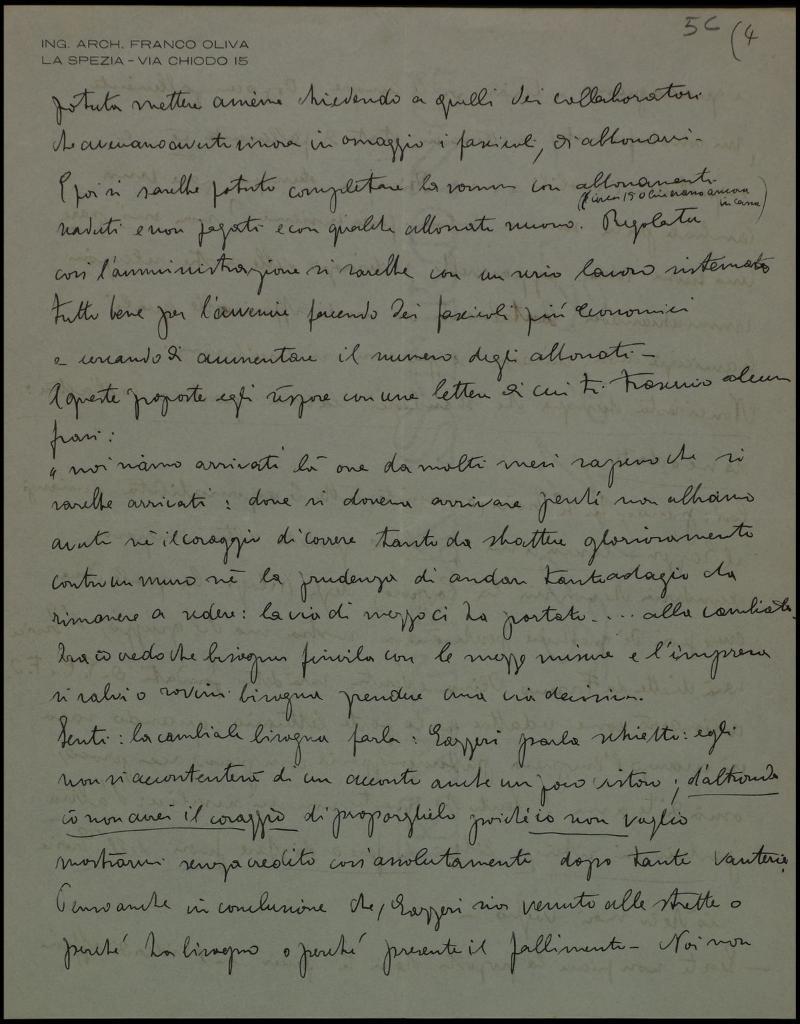 5C (4
ING. ARCH. FRANCO OLIVA
LA SPEZIA – VIA CHIODO 15
potuta mettere assieme chiedendo a quelli dei collaboratori
che avevano avuto sinora in omaggio i fascicoli, di abbonarsi –
E poi si sarebbe potuto completare la somma con abbonamenti
(circa 150 lire erano ancora in cassa)
scaduti e non pagati e con qualche abbonato nuovo. Regolata
così l'amministrazione si sarebbe con un serio lavoro sistemato
tutto bene per l'avvenire facendo dei fascicoli più economici
e cercando di aumentare il numero degli abbonati –
A queste proposte egli rispose con una lettera di cui ti trascrivo alcune
frasi:
" noi siamo arrivati là ove da molti mesi sapevo che si
sarebbe arrivati: dove si doveva arrivare perché non abbiamo
avuto nè il coraggio di correre tanto da sbattere gloriosamente
contro un muro nè la prudenza di andare tanto adagio da
rimanere a sedere: la via di mezzo ci ha portato.... alla cambiale.
Ora io credo che bisogna finirla con le mezze misure e l'impresa
si salvi o rovini bisogna prendere una via decisiva.
Senti: la cambiale bisogna farla: Gazzeri parla schietto: egli
non si accontenterà di un acconto anche un poco vistoso; d'altronde
io non avrei il coraggio di proporglielo poiché io non voglio
mostrarmi senza credito così assolutamente dopo tante vanterie.
Penso anche in conclusione che, Gazzeri sia venuto alle strette o
perché ha bisogno o perché presente il fallimento – Noi non